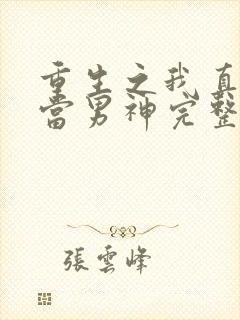 重生之我真
當男神完整
張雲峰